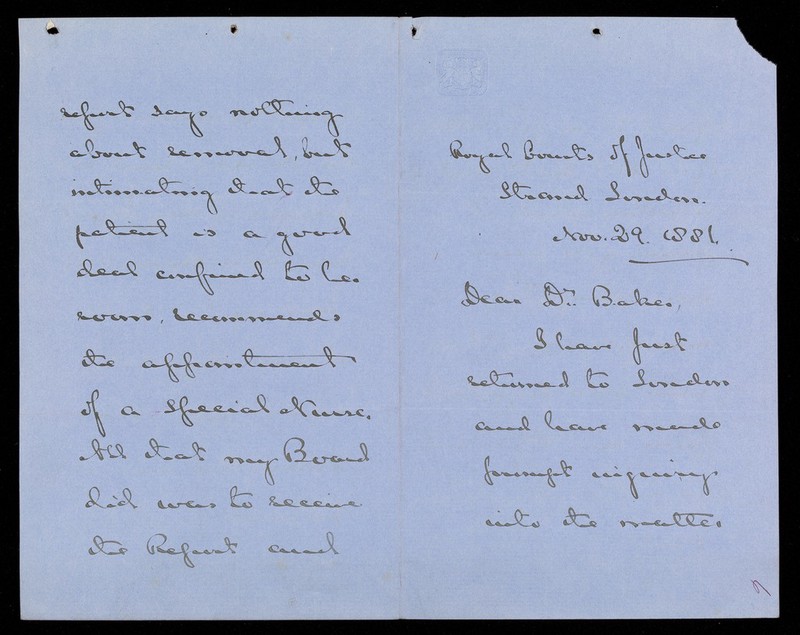 Royal Courts of Justice
Strand London.
Nov. 29. 1881.
Dear Dr. Baker,
I have just
returned to London
and have made
prompt inquiry
into the matter
report says nothing
about removal, but
intimating that the
patient is a good
deal confined to her
room, recommends
the appointment
of a special Nurse.
All that my Board
did was to receive
the Report and